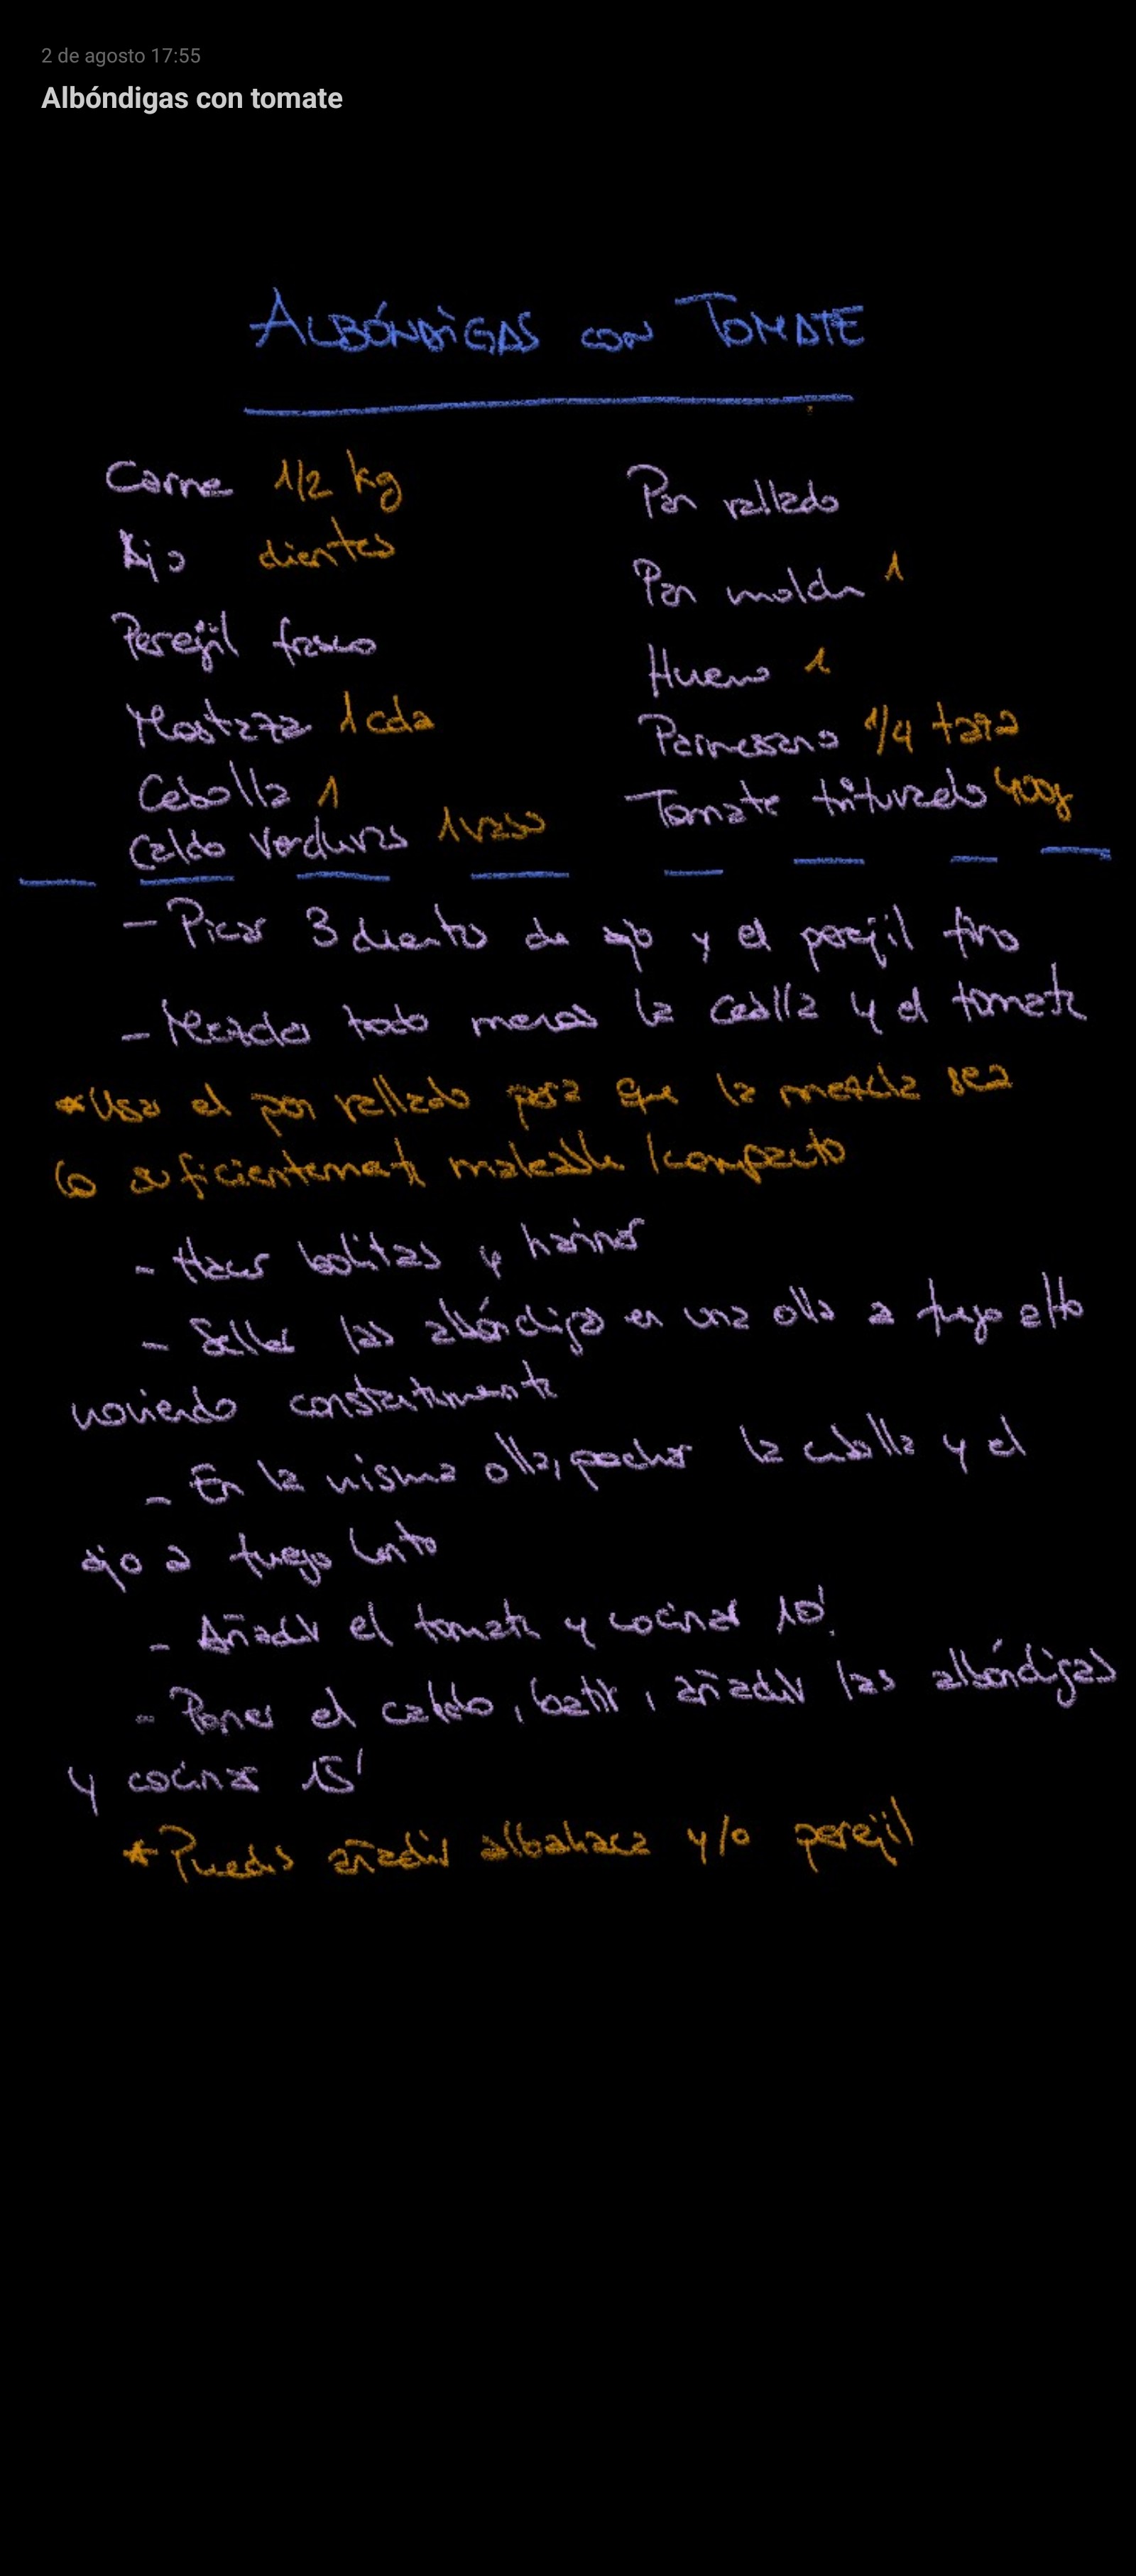 2 de agosto 17:55
Albóndigas con tomate
ALBÓNDIGAS CON TOMATE
Carne 1/2 kg
Ajo dientes
Perejil fresco
Mostaza 1 cda
Cebolla 1
Caldo verduras 1 vaso
Pan rallado
Pan molde 1
Huevo 1
Parmesano 1/4 taza
Tomate triturado 400g
- Picar 3 dientes de ajo y el perejil fino
- Mezclar todo menos la cebolla y el tomate
*Usa el pan rallado para que la mezcla sea
lo suficientemente maleable/compacto
- Hacer bolitas y harinar
- Sellar las albóndigas en una olla a fuego alto
moviendo constantemente
- En la misma olla, pochar la cebolla y el
ajo a fuego lento
- Añadir el tomate y cocinar 10'.
- Poner el caldo, batir, añadir las albóndigas
y cocinar 15'
*Puedes añadir albahaca y/o perejil